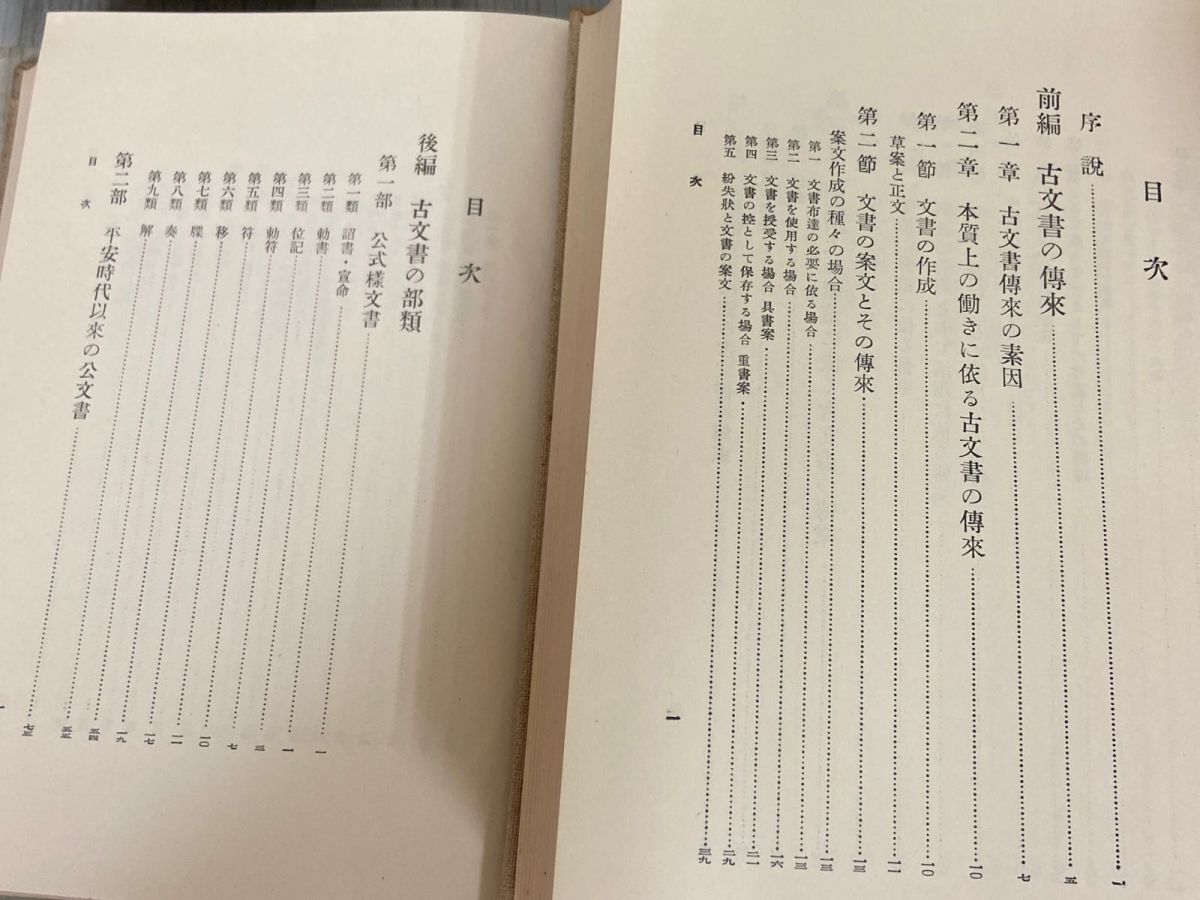 目次
序說 一
前編 古文書の傳來 五
第一章 古文書傳來の素因 七
第二章 本質上の働きに依る古文書の傳來 一〇
第一節 文書の作成 一〇
草案と正文 一一
第二節 文書の案文とその傳來 一三
案文作成の種々の場合 一三
第一 文書布達の必要に依る場合 一三
第二 文書を使用する場合 一六
第三 文書を授受する場合 具書案 二一
第四 文書の控として保存する場合 重書案 二九
第五 紛失狀と文書の案文 三九
目次
一
目次
後編 古文書の部類
第一部 公式樣文書 一
第一類 詔書・宣命 一
第二類 勅書 三
第三類 位記 七
第四類 勅符 一〇
第五類 符 一一
第六類 移 一七
第七類 牒 一九
第八類 奏 五四
第九類 解 五五
第二部 平安時代以來の公文書 七五
目次
一